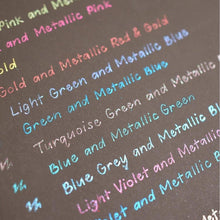 Pink and Metallic
and Metallic Pink
Gold
Gold and Metallic Red & Gold
Light Green and Metallic Blue
Green and Metallic Blue
Turquoise Green and Metallic
Blue and Metallic Green
Blue Grey and Metallic Blue
Light Violet and Metallic
and Metallic